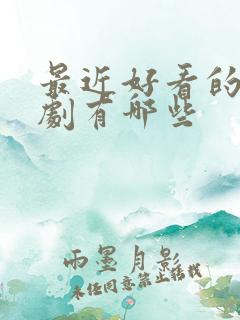 最近好看的
劇有哪些
雨墨月影
未經同意禁止轉載